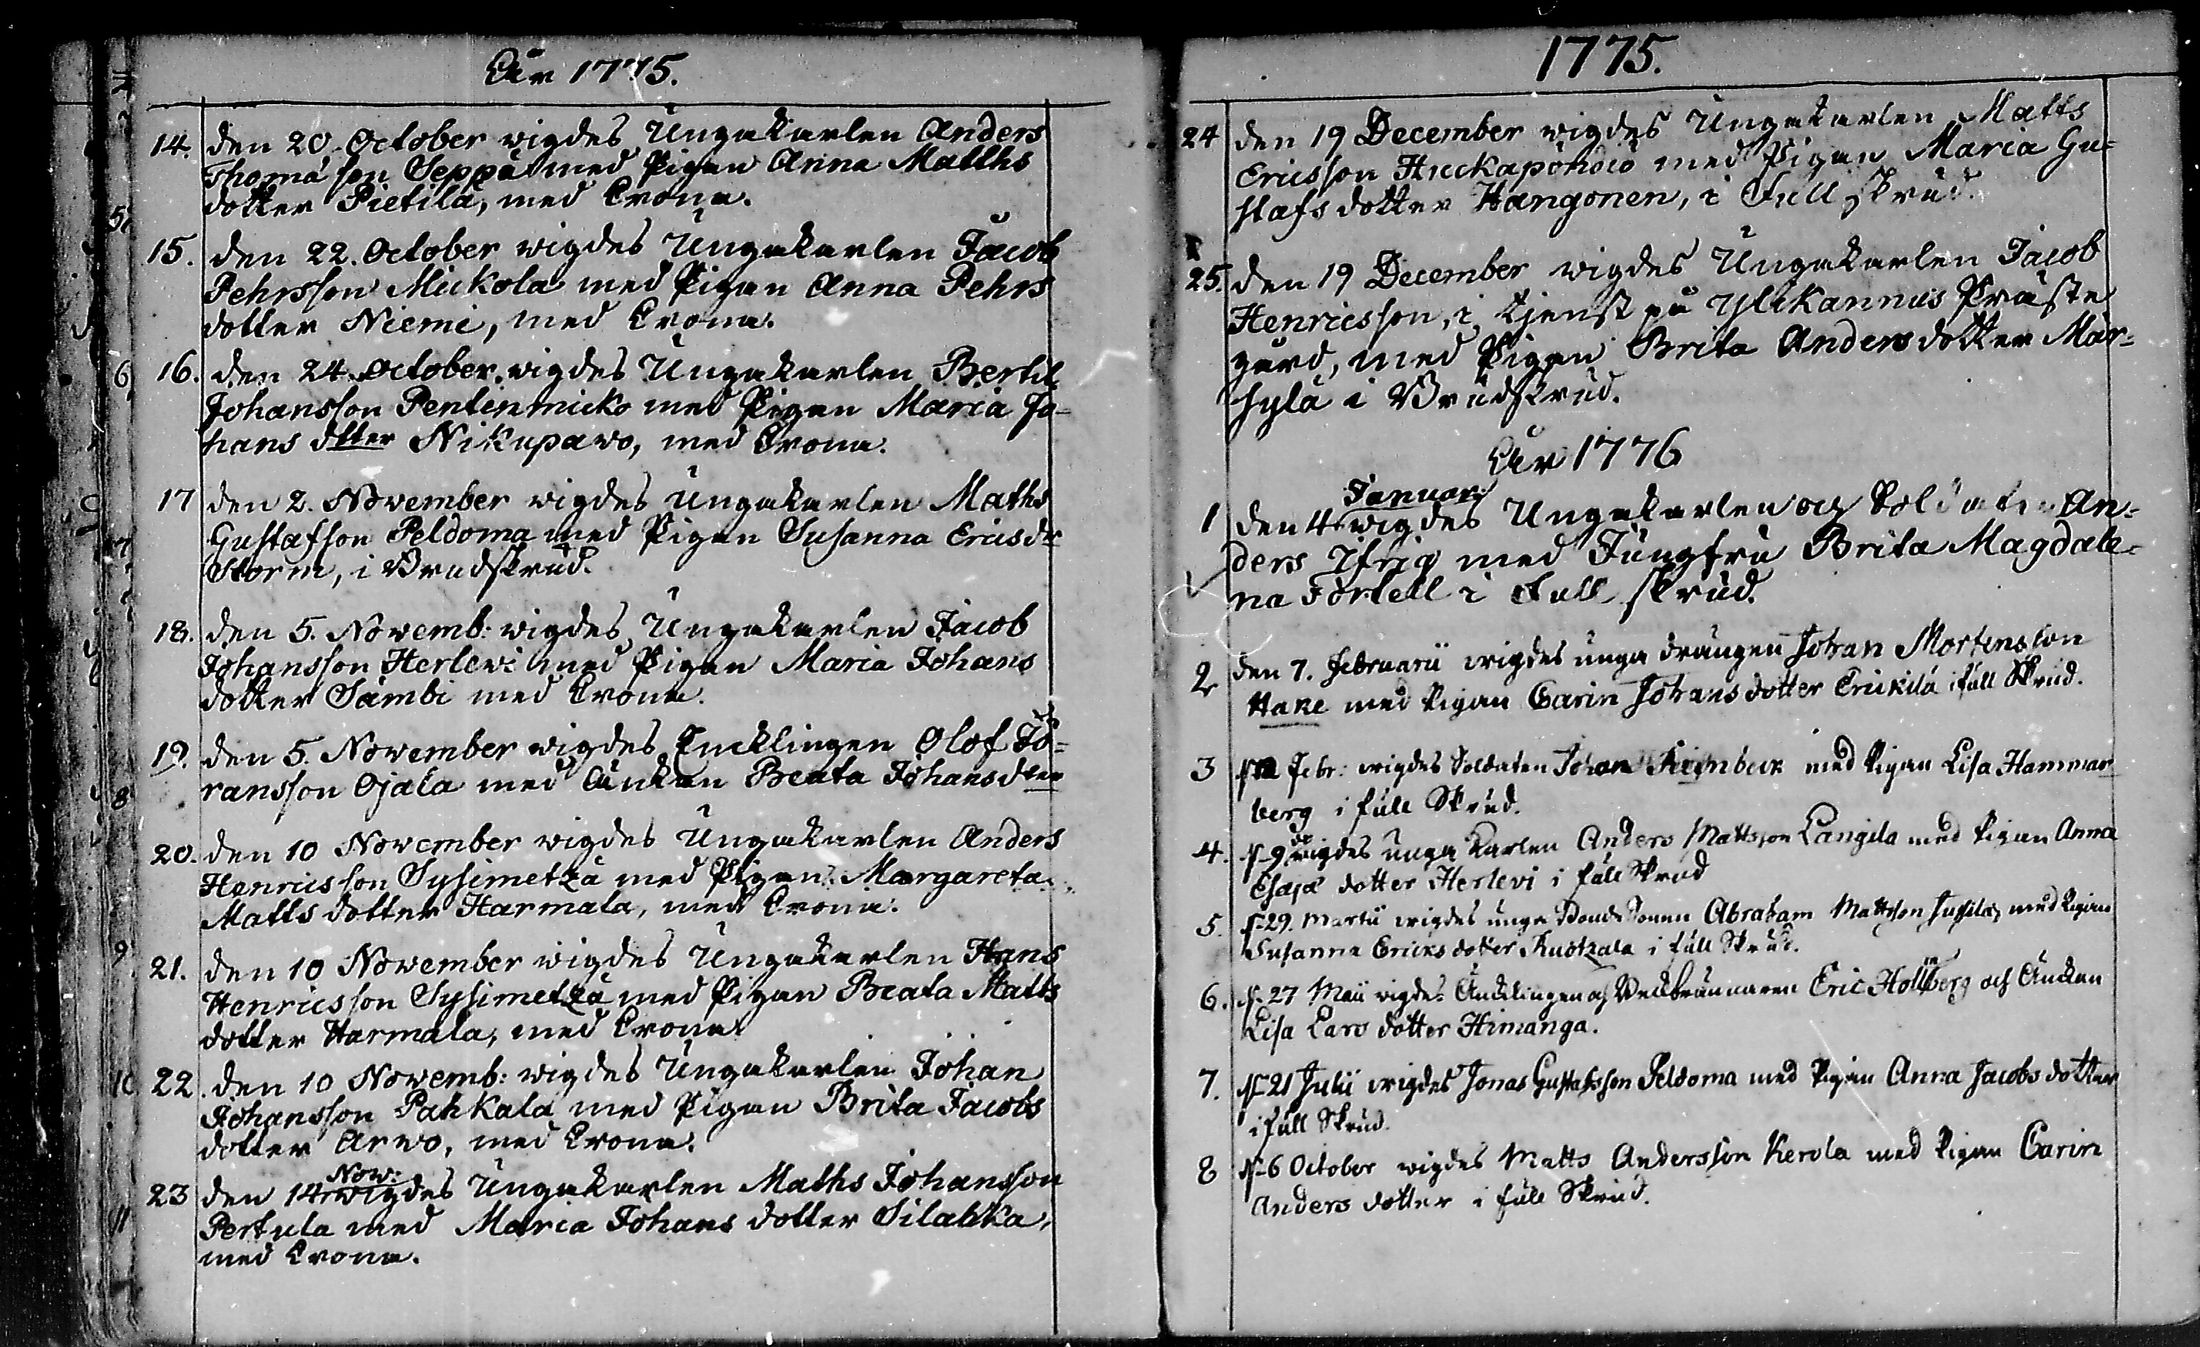 År 1775.
14. den 20. October wigdes Ungakarlen Anders
Thomæ son Seppä med Pigan Anna Matths
dotter Pietilä, med Crona.
15. den 22. October wigdes Ungakarlen Jacob
Pehrsson Mickola med Pigan Anna Pehrs
dotter Niemi, med Crona.
16. den 24. October wigdes Ungakarlen Bertil
Johansson Pentenmicko med Pigan Maria Jo=
hans dtter Nikupawo, med Crona.
17 den 2. November wigdes Ungakarlen Maths
Gustafson Peldoma med Pigan Susanna Ericsdr
Storm, i Brudskrud.
18. den 5. Novemb: wigdes Ungakarlen Jacob
Johansson Herlewi med Pigan Maria Johans
dotter Sämbi med Crona.
19. den 5. November wigdes Encklingen Olof Jö=
ransson Ojala med Änkan Beata Johansdtter
20. den 10 November wigdes Ungakarlen Anders
Henricsson Sysimetzä med Pigan Margareta
Matts dotter Harmala, med Crona.
21. den 10 November wigdes Ungakarlen Hans
Henricsson Sysimetzä med Pigan Beata Matts
dotter Harmala, med Crona.
22. den 10 Novemb: wigdes Ungakarlen Johan
Johansson Pahkala med Pigan Brita Jacobs
dotter Arwo, med Crona.
Now:
23 den 14 wigdes Ungakarlen Maths Johansson
Pertula med Maria Johans dotter Silakka,
med Crona.
1775.
24 den 19 December wigdes Ungakarlen Matts
Ericsson Huckapöndiö med Pigan Maria Gu=
stafs dotter Hangonen, i Full skrud.
25. den 19 December wigdes Ungakarlen Jacob
Henricsson, i tjenst på Ylikannus Präste
gård, med Pigan Brita Anders dotter Mär=
sylä i Brudskrud.
År 1776
Januari
1 den 4 wigdes Ungakarlen och Soldaten An=
ders Yfrig med Jungfru Brita Magdale=
na Forsell i Full skrud.
2 den 7. Februarii wigdes unga drängen Johan Mortensson
Hake med Pigan Carin Johans dotter Erickilä i full Skrud.
3 Febr: wigdes Soldaten Johan med Pigan Lisa Hammar
berg i full Skrud.
do
4. d. 9 wigdes unga Karlen Anders Mattsson Langila med Pigan Anna
Esajæ dotter Herlevi i full Skrud
5. d. 29. Martii wigdes unga Bonde Sonen Abraham Mattsson Jussila, med Pigan
Susanna Ericks dotter Ruotzala i full Skrud.
6. d. 27 Maii wigdes Äncklingen och Becksbrännaren Eric Hollberg och Änckan
Lisa Lars dotter Himanga.
7. d. 21 Julii wigdes Jonas Gustafsson Peldoma med Pigan Anna Jacobs dotter
i full Skrud.
8 d. 6 October wigdes Matts Andersson Kerola med Pigan Carin
Anders dotter i full Skrud.